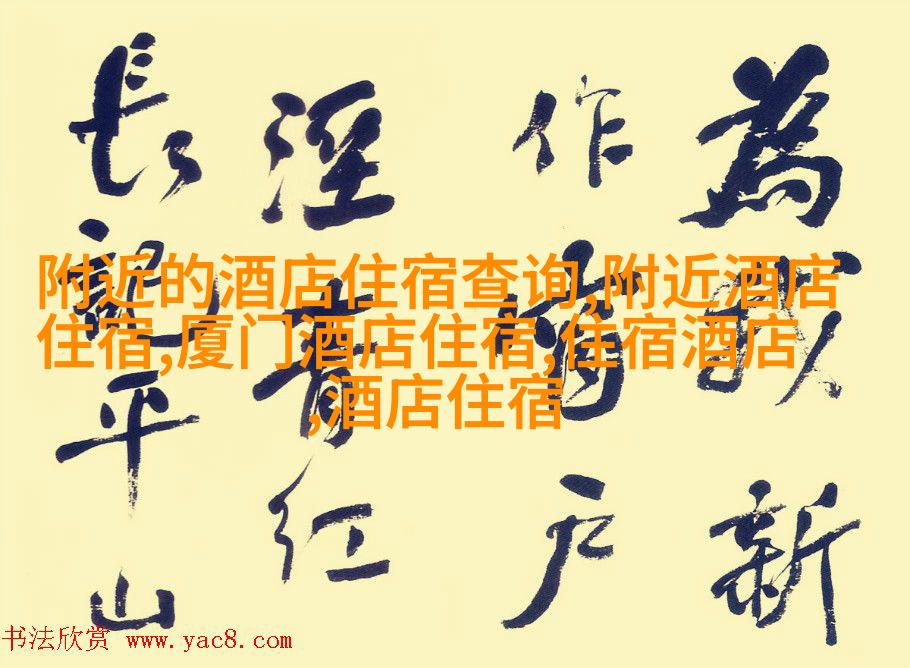 為我新
作窗户
溼青红
長記平山
附近的酒店住宿查询,附近酒店
住宿,厦门酒店住宿,住宿酒店
,酒店住宿
书法欣赏 www.yac8.com